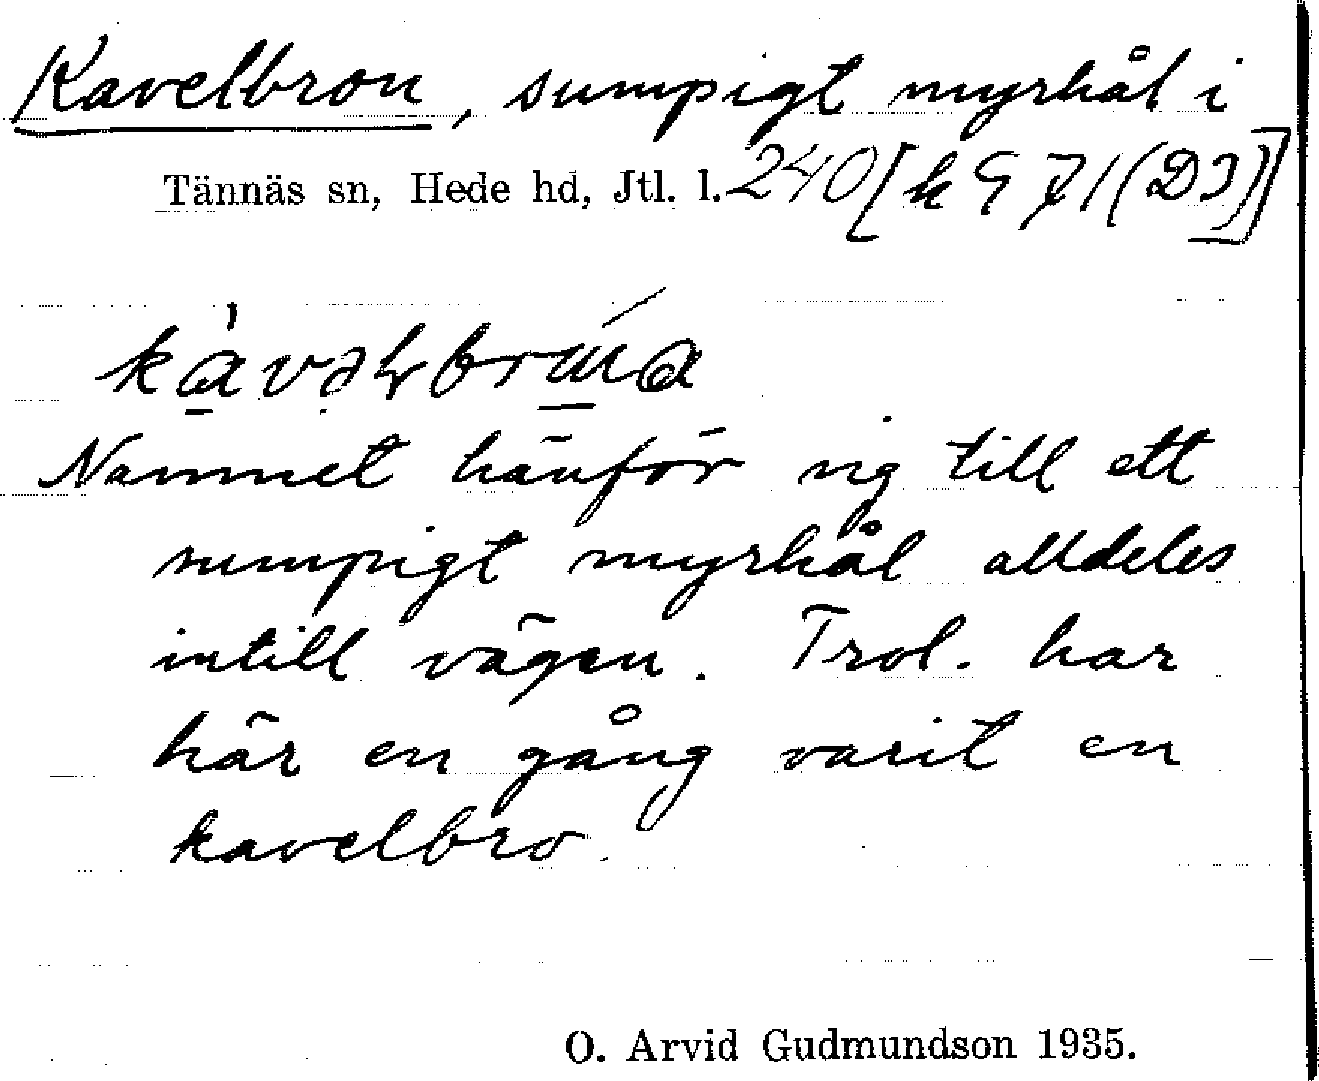 Kavelbron, sumpigt myrhål i
Tännäs sn, Hede hd, Jtl. l. 240 [k 971 (DI)]
Namnet hänför sig till ett
sumpigt myrhål alldeles
intill vägen. Trol. har
här en gång varit en
kavelbro.
O. Arvid Gudmundson 1935.